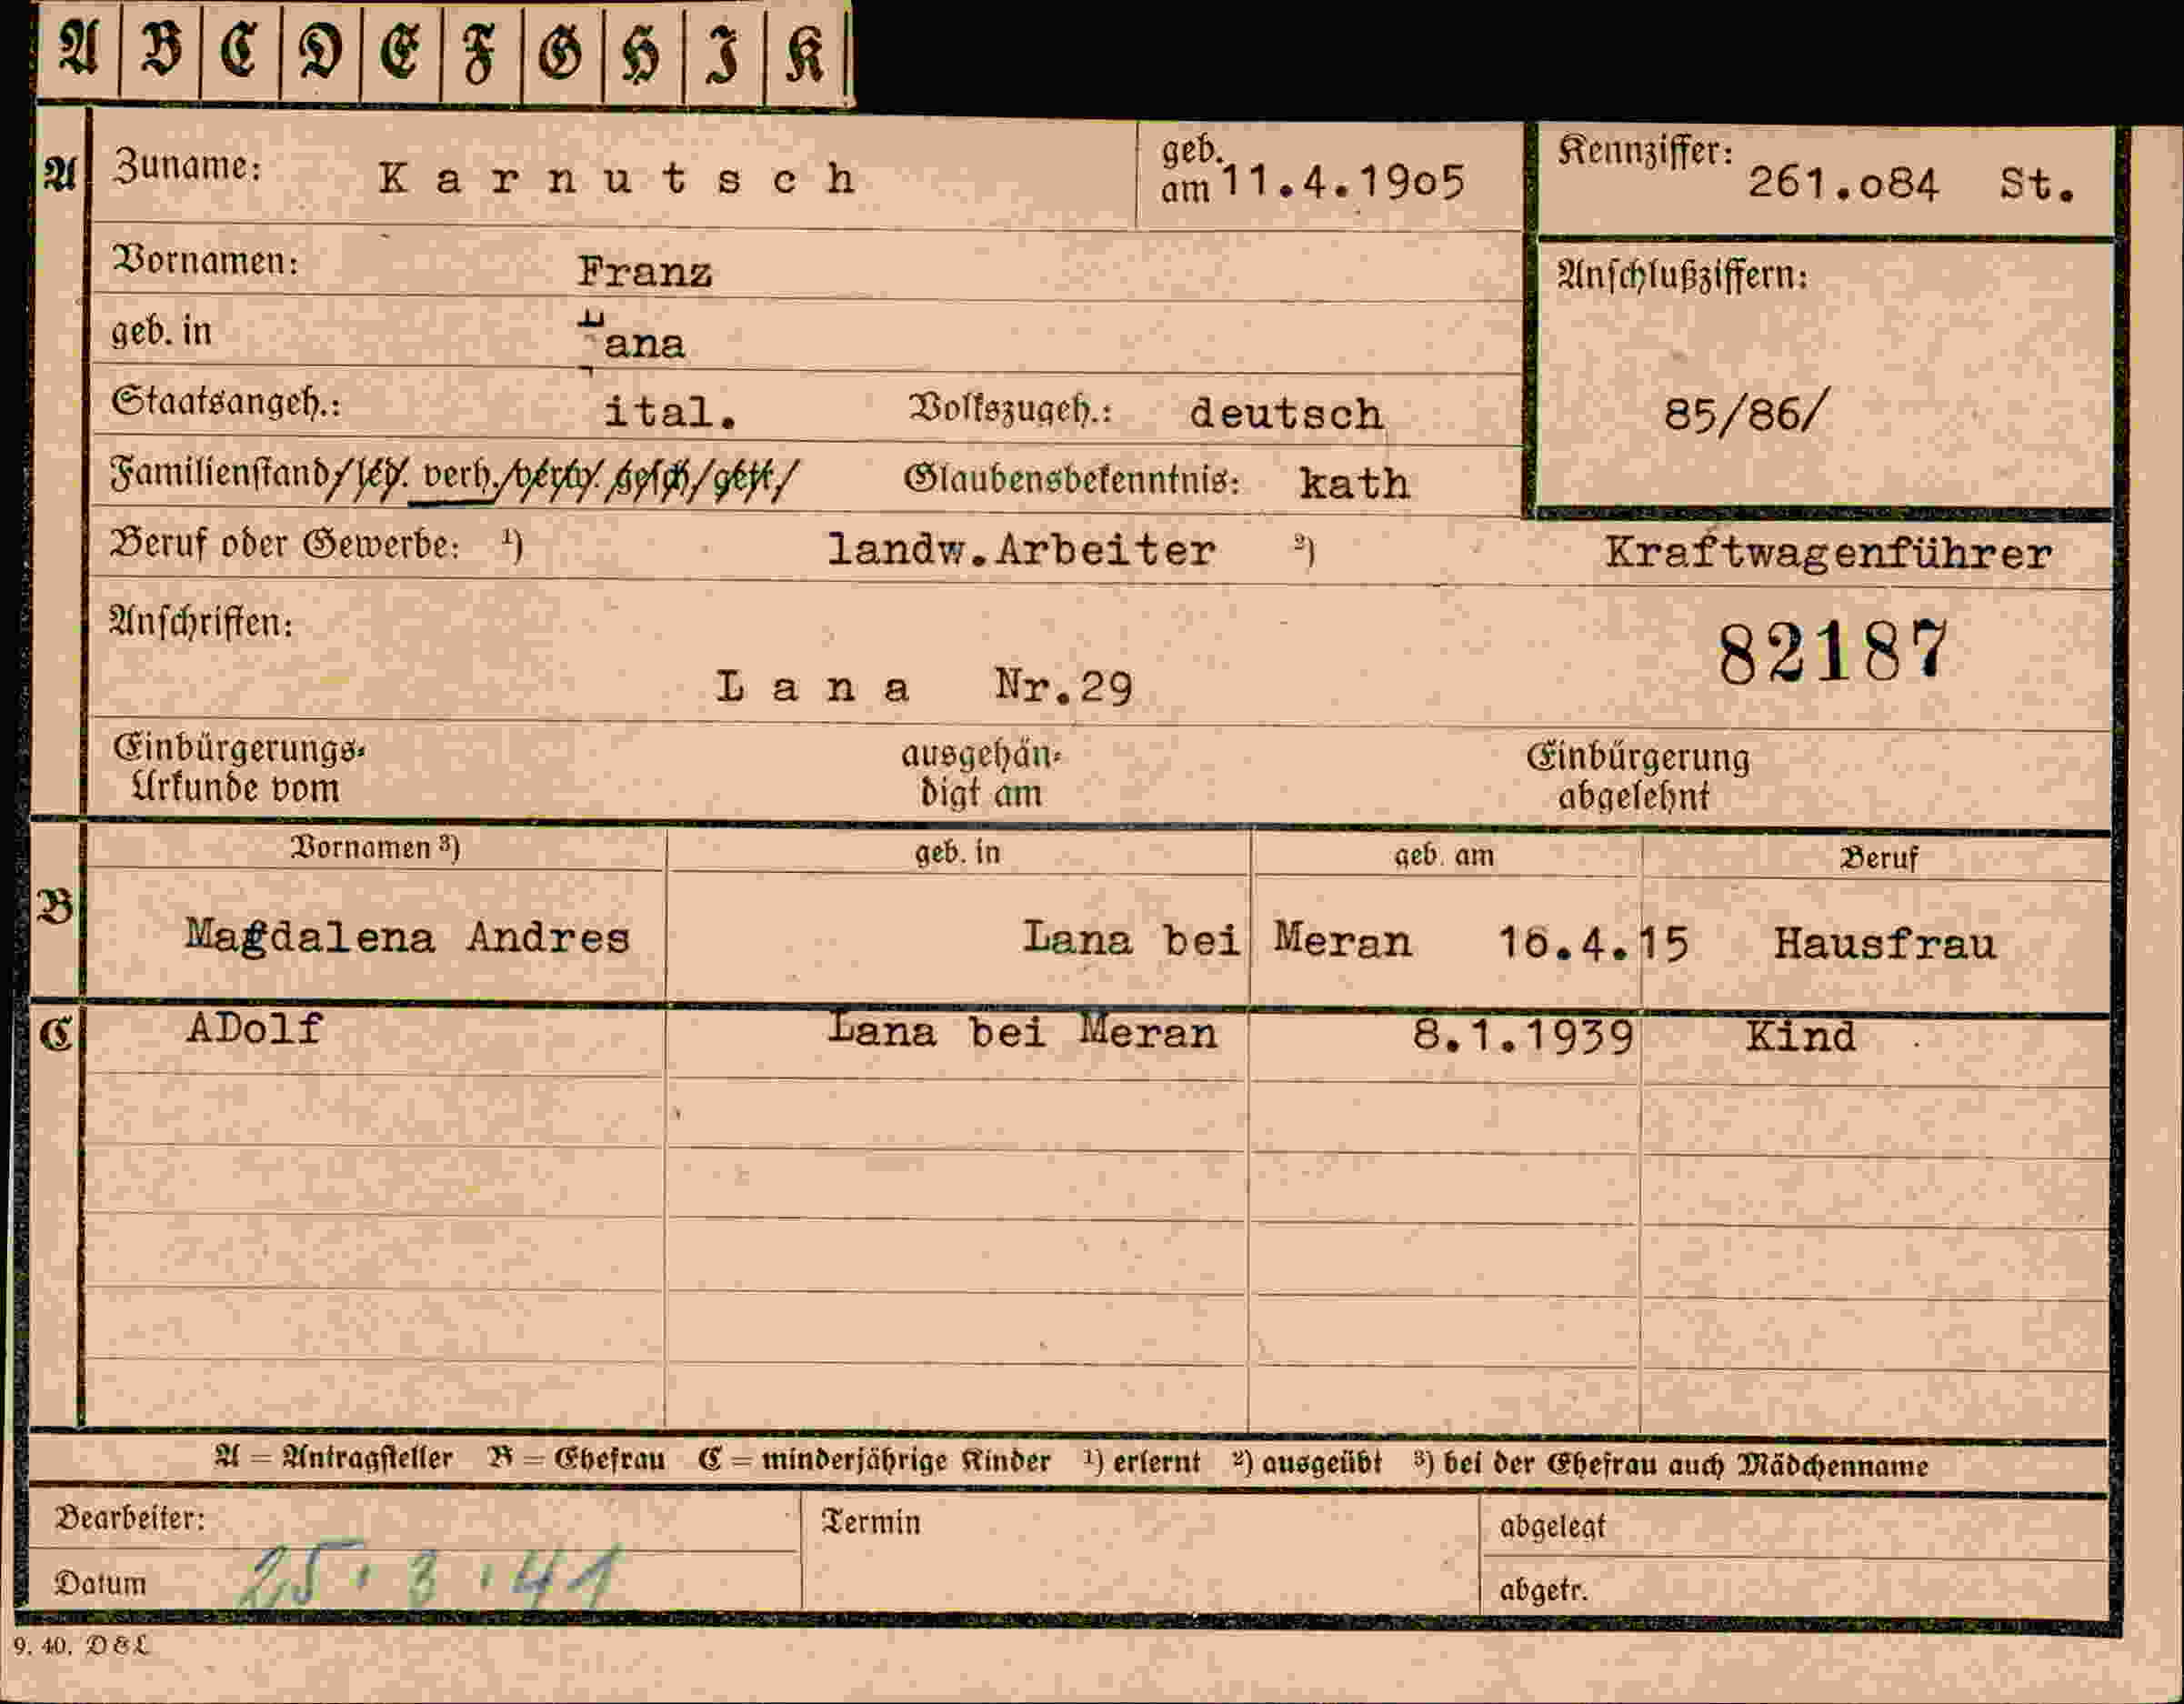 A B C D E F G H I K
A Zuname: Karnutsch geb. am 11.4.19o5 Kennziffer: 261.o84 St.
Vornamen: Franz Anschlußziffern:
geb. in Lana
Staatsangeh.: ital. Volkszugeh.: deutsch 85/86/
Familienstand/led. verh./verw. gesch/getr/ Glaubensbekenntnis: kath
Beruf oder Gewerbe: ¹) landw.Arbeiter ²) Kraftwagenführer
Anschriften: 82187
Lana Nr.29
Einbürgerungs- ausgehän- Einbürgerung
Urkunde vom digt am abgelehnt
Vornamen ³) geb. in geb. am Beruf
B Magdalena Andres Lana bei Meran 16.4.15 Hausfrau
C ADolf Lana bei Meran 8.1.1939 Kind
A = Antragsteller B = Ehefrau C = minderjährige Kinder ¹) erlernt ²) ausgeübt ³) bei der Ehefrau auch Mädchenname
Bearbeiter: Termin abgelegt
Datum 25.3.41 abgetr.
9. 40. D&L